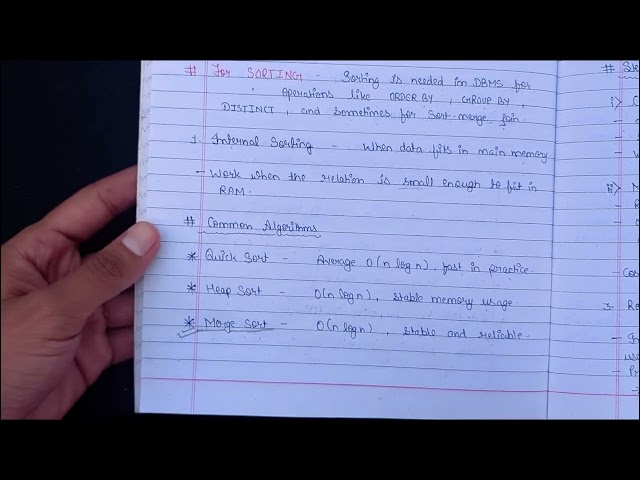 # For SORTING - Sorting is needed in DBMS for
operations like ORDER BY, GROUP BY,
DISTINCT, and sometimes for Sort-merge join.
1. Internal Sorting - When data fits in main memory
- Work when the relation is small enough to fit in
RAM.
# Common Algorithms
* Quick Sort - Average O(n log n), fast in practice.
* Heap Sort - O(n log n), stable memory usage.
* Merge Sort - O(n log n), stable and reliable.
#
i)
ii)
3.